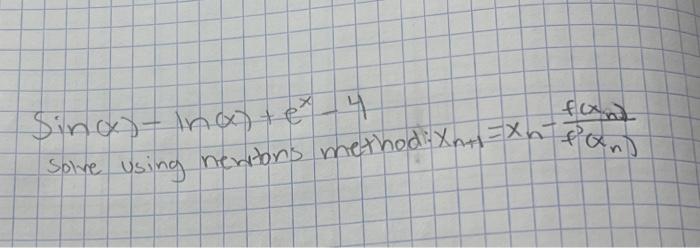 Sin(x) - ln(x) + e^x - 4
Solve using newtons method: x_{n+1} = x_n - f(x_n)/f'(x_n)